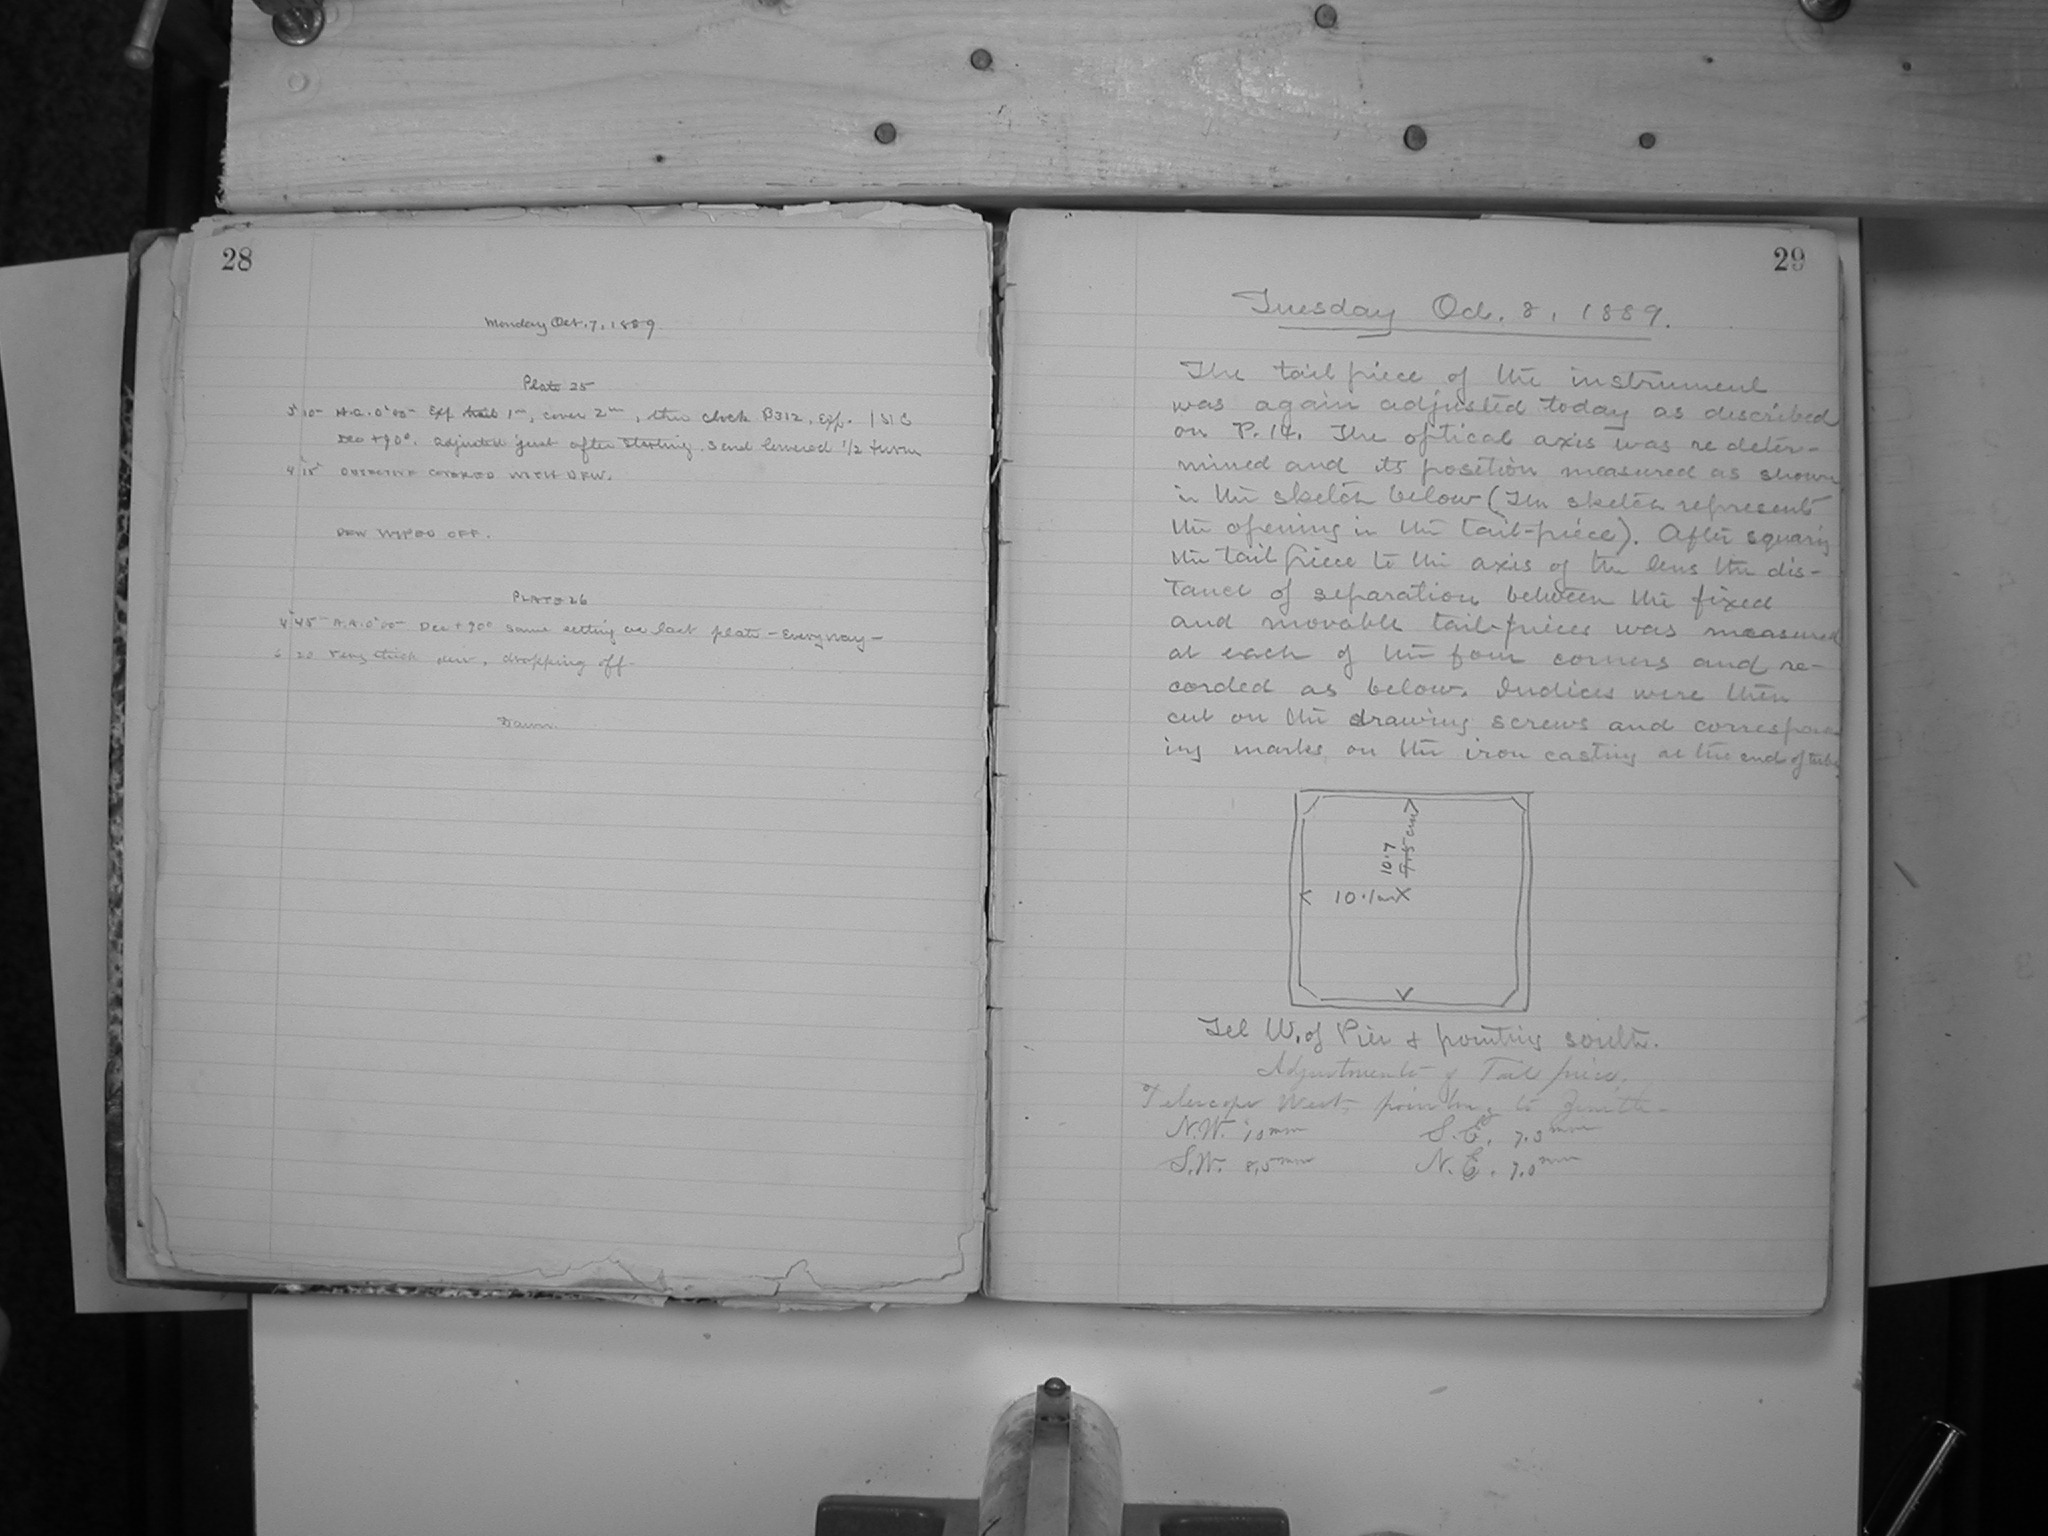 28
Monday Oct. 7, 1889
Plate 25
3 10 H.A. 0°00 Exp 1m, cover 2m, then clock B312, Exp.
Dec +90°. adjusted just after starting. send lowered 1/2 turn
4 15 OBJECTIVE COVERED WITH DEW.
DEW WIPED OFF.
PLATE 26
4 45 H.A. 0°00 Dec + 90° same setting as last plate - Everyway -
5 20 very thick dew, dropping off.
Dawn.
29
Tuesday Oct. 8, 1889.
The tail piece of the instrument
was again adjusted today as described
on P. 14. The optical axis was re deter-
mined and its position measured as shown
in the sketch below (The sketch represents
the opening in the tail-piece). After squaring
the tail piece to the axis of the lens the dis-
tance of separation between the fixed
and movable tail-pieces was measured
at each of the four corners and re-
corded as below. Indices were then
cut on the drawing screws and correspond
ing marks on the iron casting at the end of tube
10.7
cm
10.1 cm
Tel W. of Pier & pointing south.
Adjustments of Tail piece.
Telescope West, pointing to Zenith -
N.W. 10 mm S.E. 7.3 mm
S.W. 8.5 mm N.E. 7.0 mm